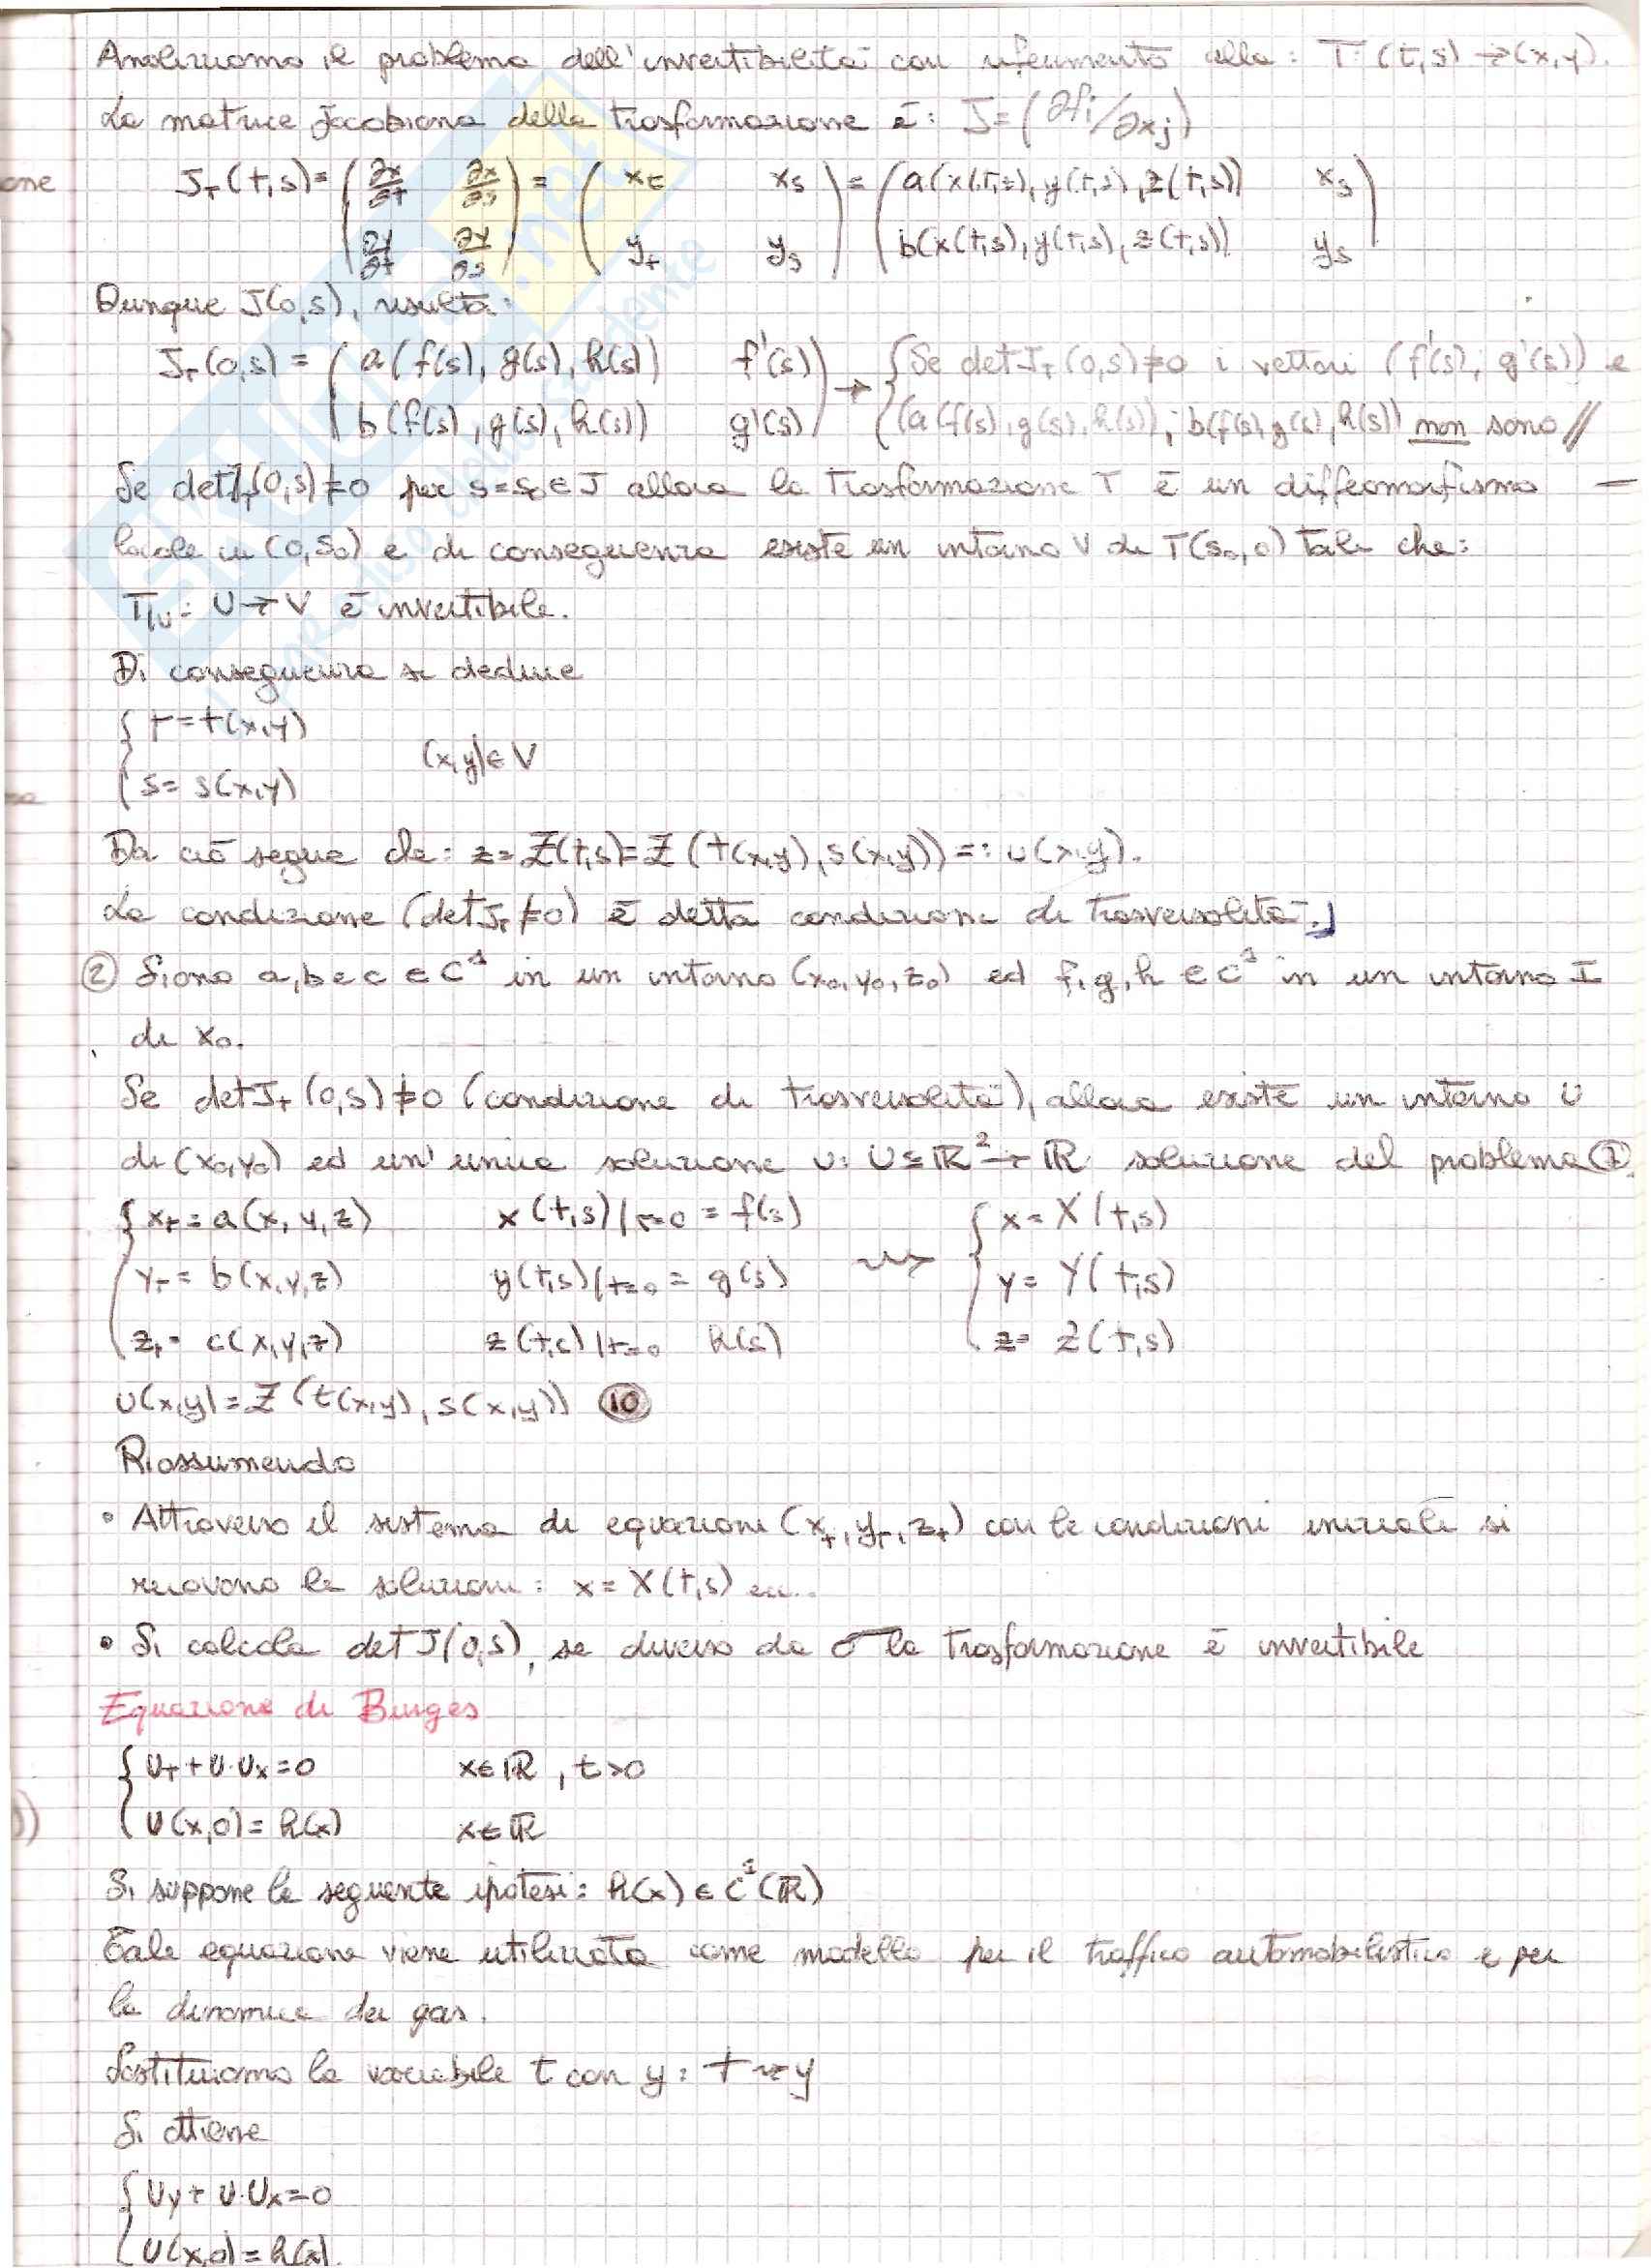 Analizziamo il problema dell'invertibilità con riferimento alla: T: (t,s) → (x,y).
La matrice Jacobiana della trasformazione è: J=(∂fi/∂xj)
one J_T(t,s) = (∂x/∂t ∂x/∂s ; ∂y/∂t ∂y/∂s) = (x_t x_s ; y_t y_s) = (a(x(t,s), y(t,s), z(t,s)) x_s ; b(x(t,s), y(t,s), z(t,s)) y_s)
Dunque J(0,s), risulta:
J_T(0,s) = (a(f(s), g(s), h(s)) f'(s) ; b(f(s), g(s), h(s)) g'(s)) → {Se det J_T(0,s)≠0 i vettori (f'(s); g'(s)) e
(a(f(s), g(s), h(s)); b(f(s), g(s), h(s)) non sono //
Se det J_T(0,s)≠0 per s=s₀∈J allora la trasformazione T è un diffeomorfismo
locale in (0,s₀) e di conseguenza esiste un intorno V di T(s₀,0) tale che:
T|u: U→V è invertibile.
Di conseguenza si deduce
{ t=t(x,y)
(x,y)∈V
s=s(x,y)
Da ciò segue che: z=Z(t,s)=Z(t(x,y), s(x,y))=: u(x,y).
La condizione (det J_T≠0) è detta condizione di trasversalità.
② Siano a,b e c ∈ C¹ in un intorno (x₀,y₀,z₀) ed f,g,h ∈ C¹ in un intorno I
di x₀.
Se det J_T(0,s)≠0 (condizione di trasversalità), allora esiste un intorno U
di (x₀,y₀) ed un'unica soluzione u: U⊆ℝ²→ℝ soluzione del problema ①
{ x_t = a(x, y, z) x(t,s)|t=0 = f(s) { x = X(t,s)
y_t = b(x,y,z) y(t,s)|t=0 = g(s) ⇝ y = Y(t,s)
z_t = c(x,y,z) z(t,s)|t=0 h(s) z = Z(t,s)
u(x,y)=Z(t(x,y), s(x,y)) ⑩
Riassumendo
• Attraverso il sistema di equazioni (x_t, y_t, z_t) con le condizioni iniziali si
ricavano le soluzioni: x = X(t,s) ecc..
• Si calcola det J(0,s), se diverso da 0 la trasformazione è invertibile
Equazione di Burges
{ u_t + u·u_x=0 x∈ℝ, t>0
u(x,0)=h(x) x∈ℝ
Si suppone la seguente ipotesi: h(x) ∈ C¹(ℝ)
Tale equazione viene utilizzata come modello per il traffico automobilistico e per
la dinamica dei gas.
Sostituiamo la variabile t con y: t ⇝ y
Si ottiene
{ u_y + u·u_x=0
u(x,0)=h(x).